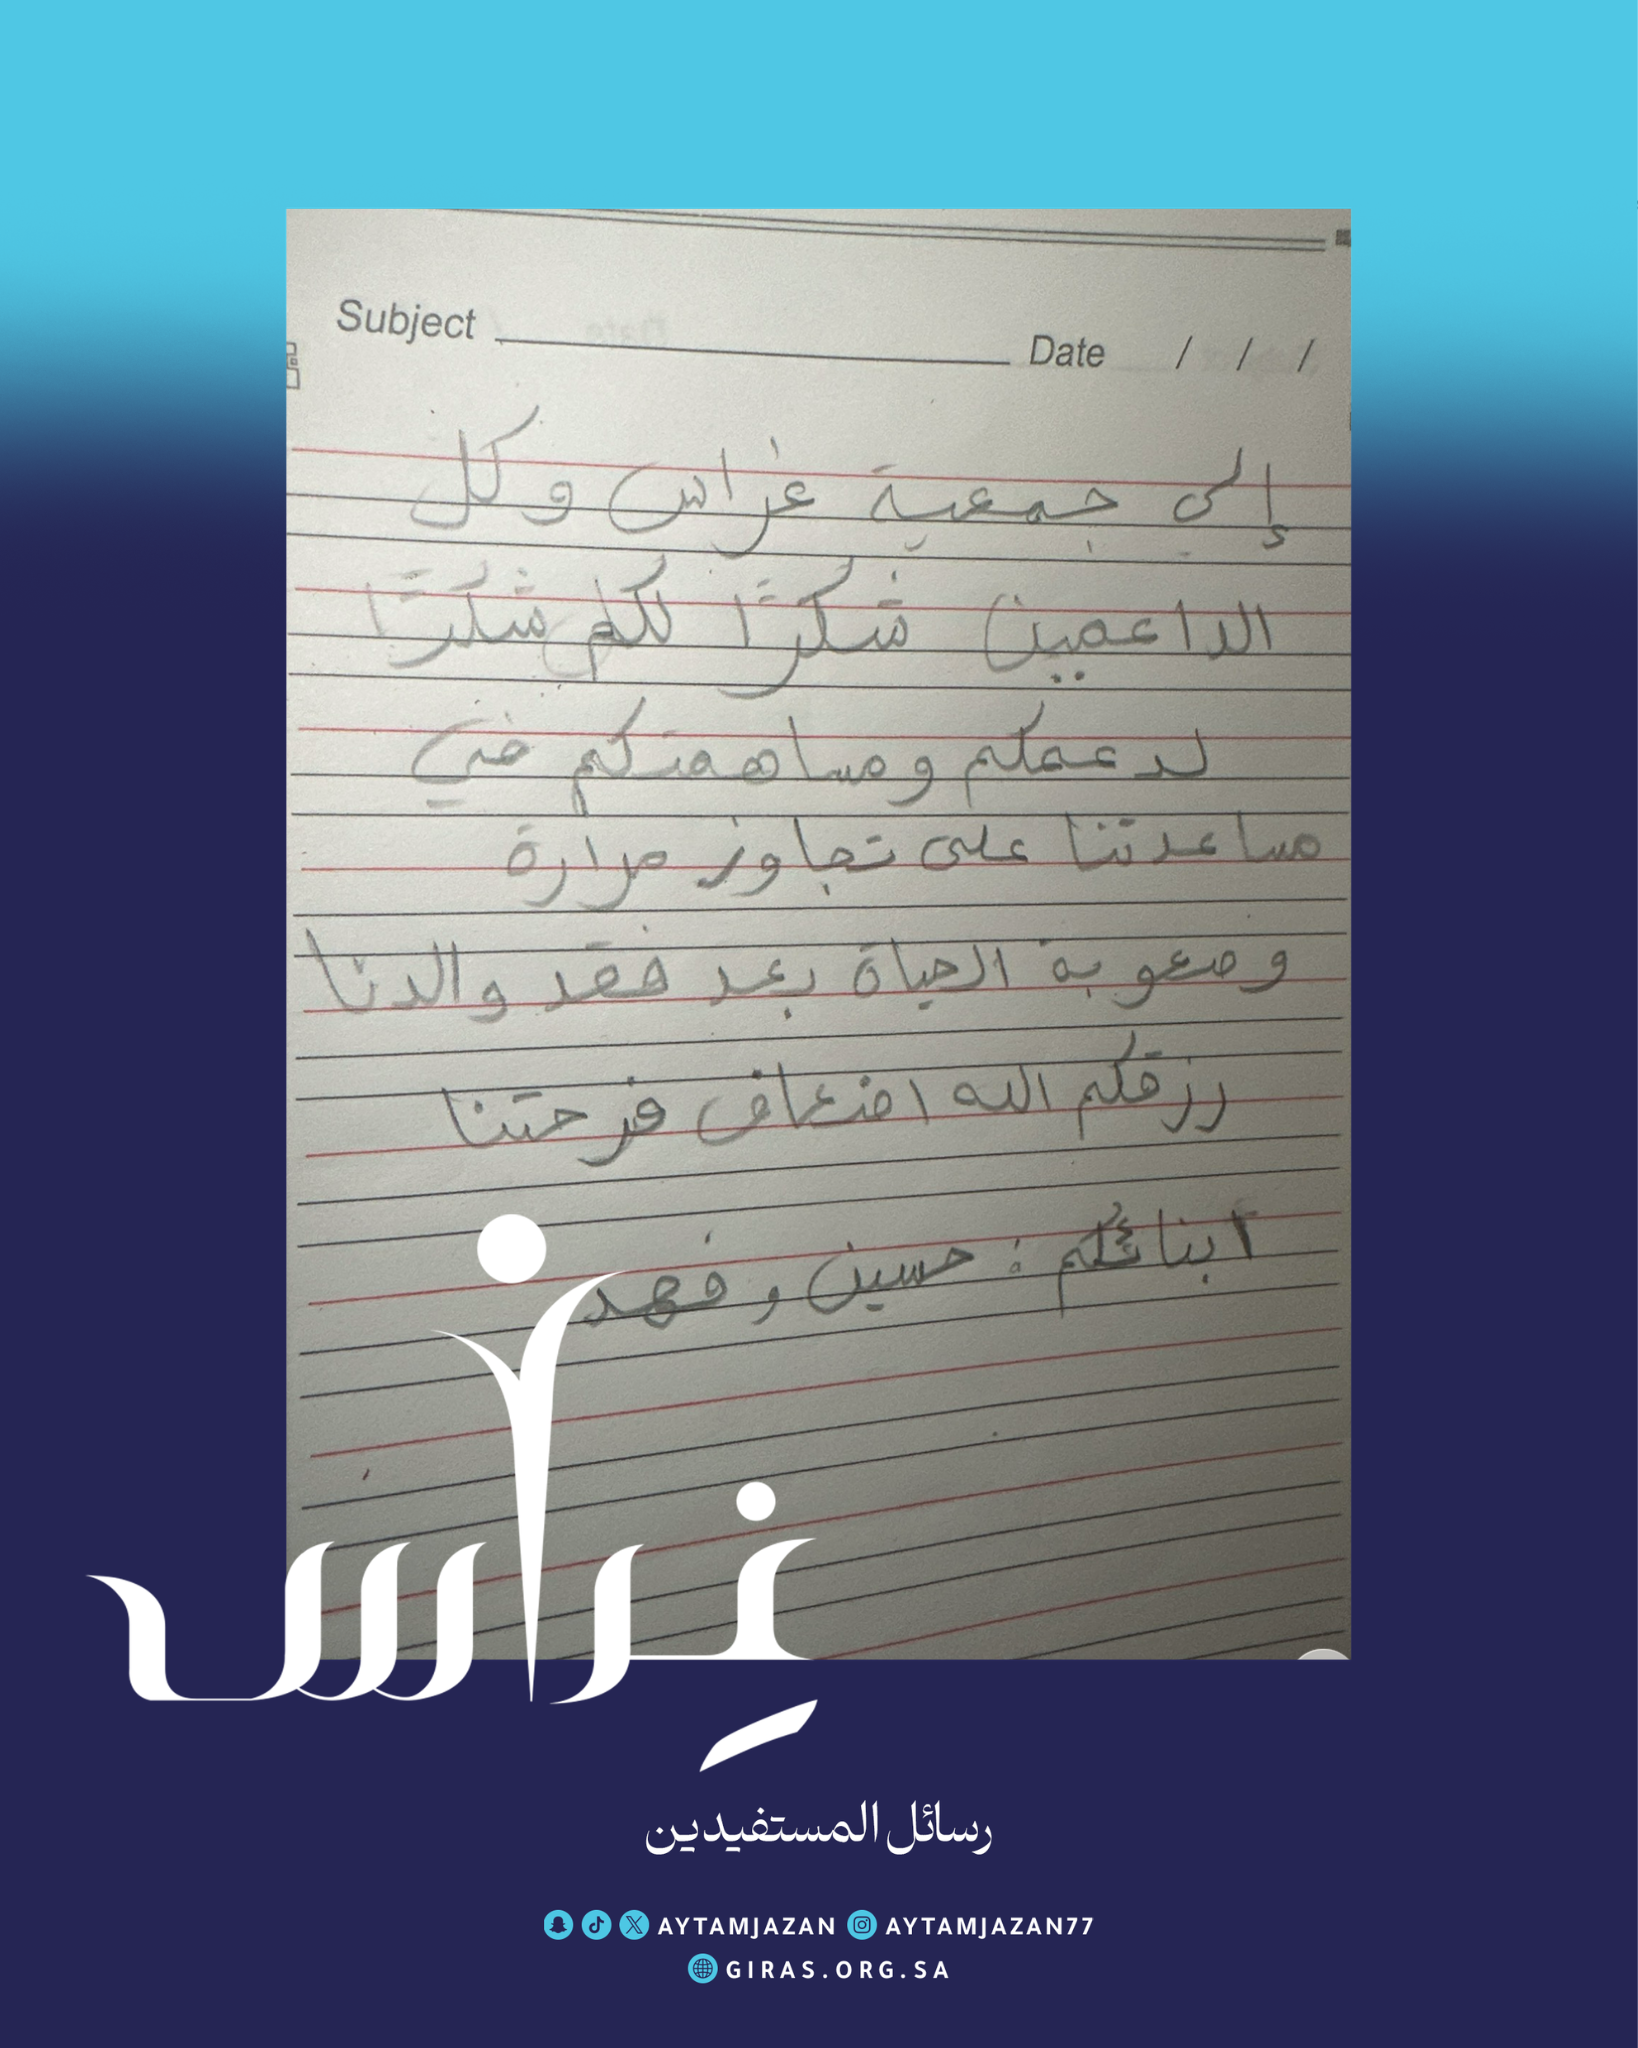 Subject Date / / /
إلي جمعية غراس وكل
الداعمين شكرًا لكم شكرًا
لدعمكم ومساهمتكم في
مساعدتنا على تجاوز مرارة
وصعوبة الحياة بعد فقد والدنا
رزقكم الله اضعاف فرحتنا
ابنائكم : حسين و فهد
غِراس
رسائل المستفيدين
AYTAMJAZAN AYTAMJAZAN77
GIRAS.ORG.SA